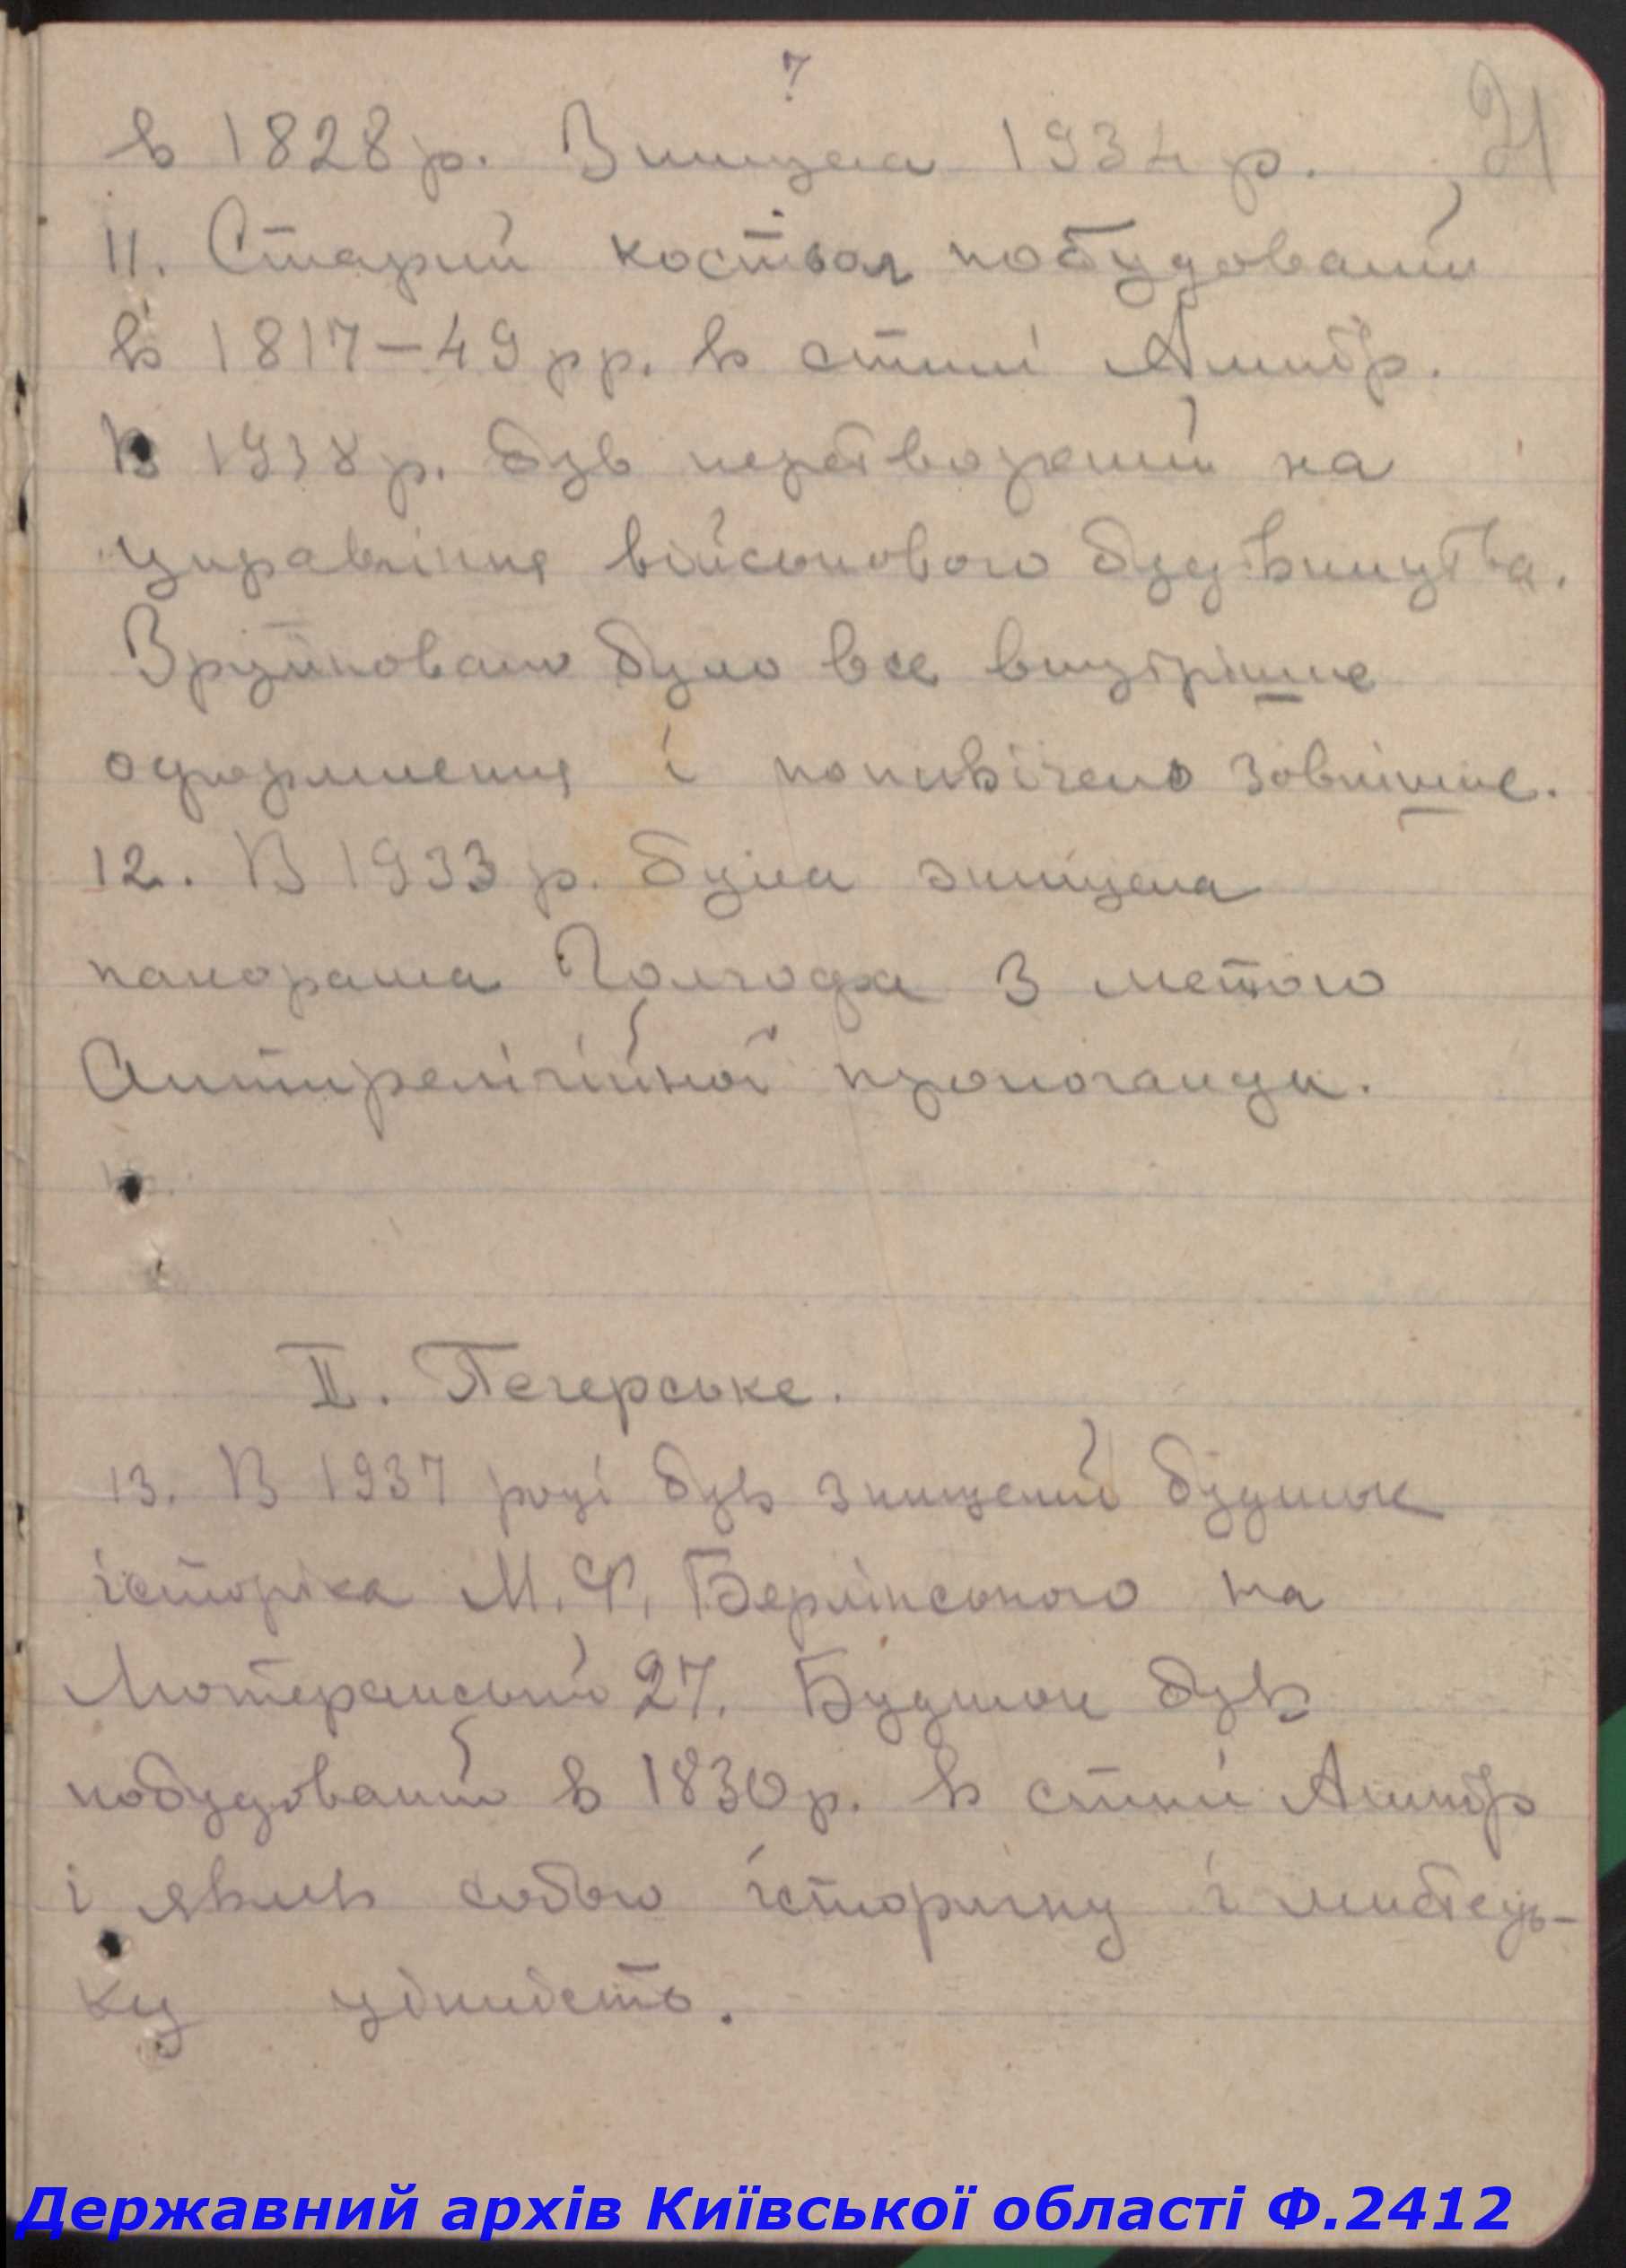 7
21
в 1828 р. Знищена 1934 р.
11. Старий костьол побудований
в 1817–49 рр. в стилі Ампір.
В 1938 р. був перетворений на
управління військового будівництва.
Зруйновано було все внутрішнє
оформлення і покалічено зовнішнє.
12. В 1933 р. була знищена
панорама Голгофа з метою
Антирелігійної пропоганди.
II. Печерське.
13. В 1937 році був знищений будинок
історіка М. Ф. Берлінського на
Лютеранський 27. Будинок був
побудований в 1830 р. в стилі Ампір
і являв собою історичну і мистець-
ку цінність.
Державний архів Київської області Ф.2412